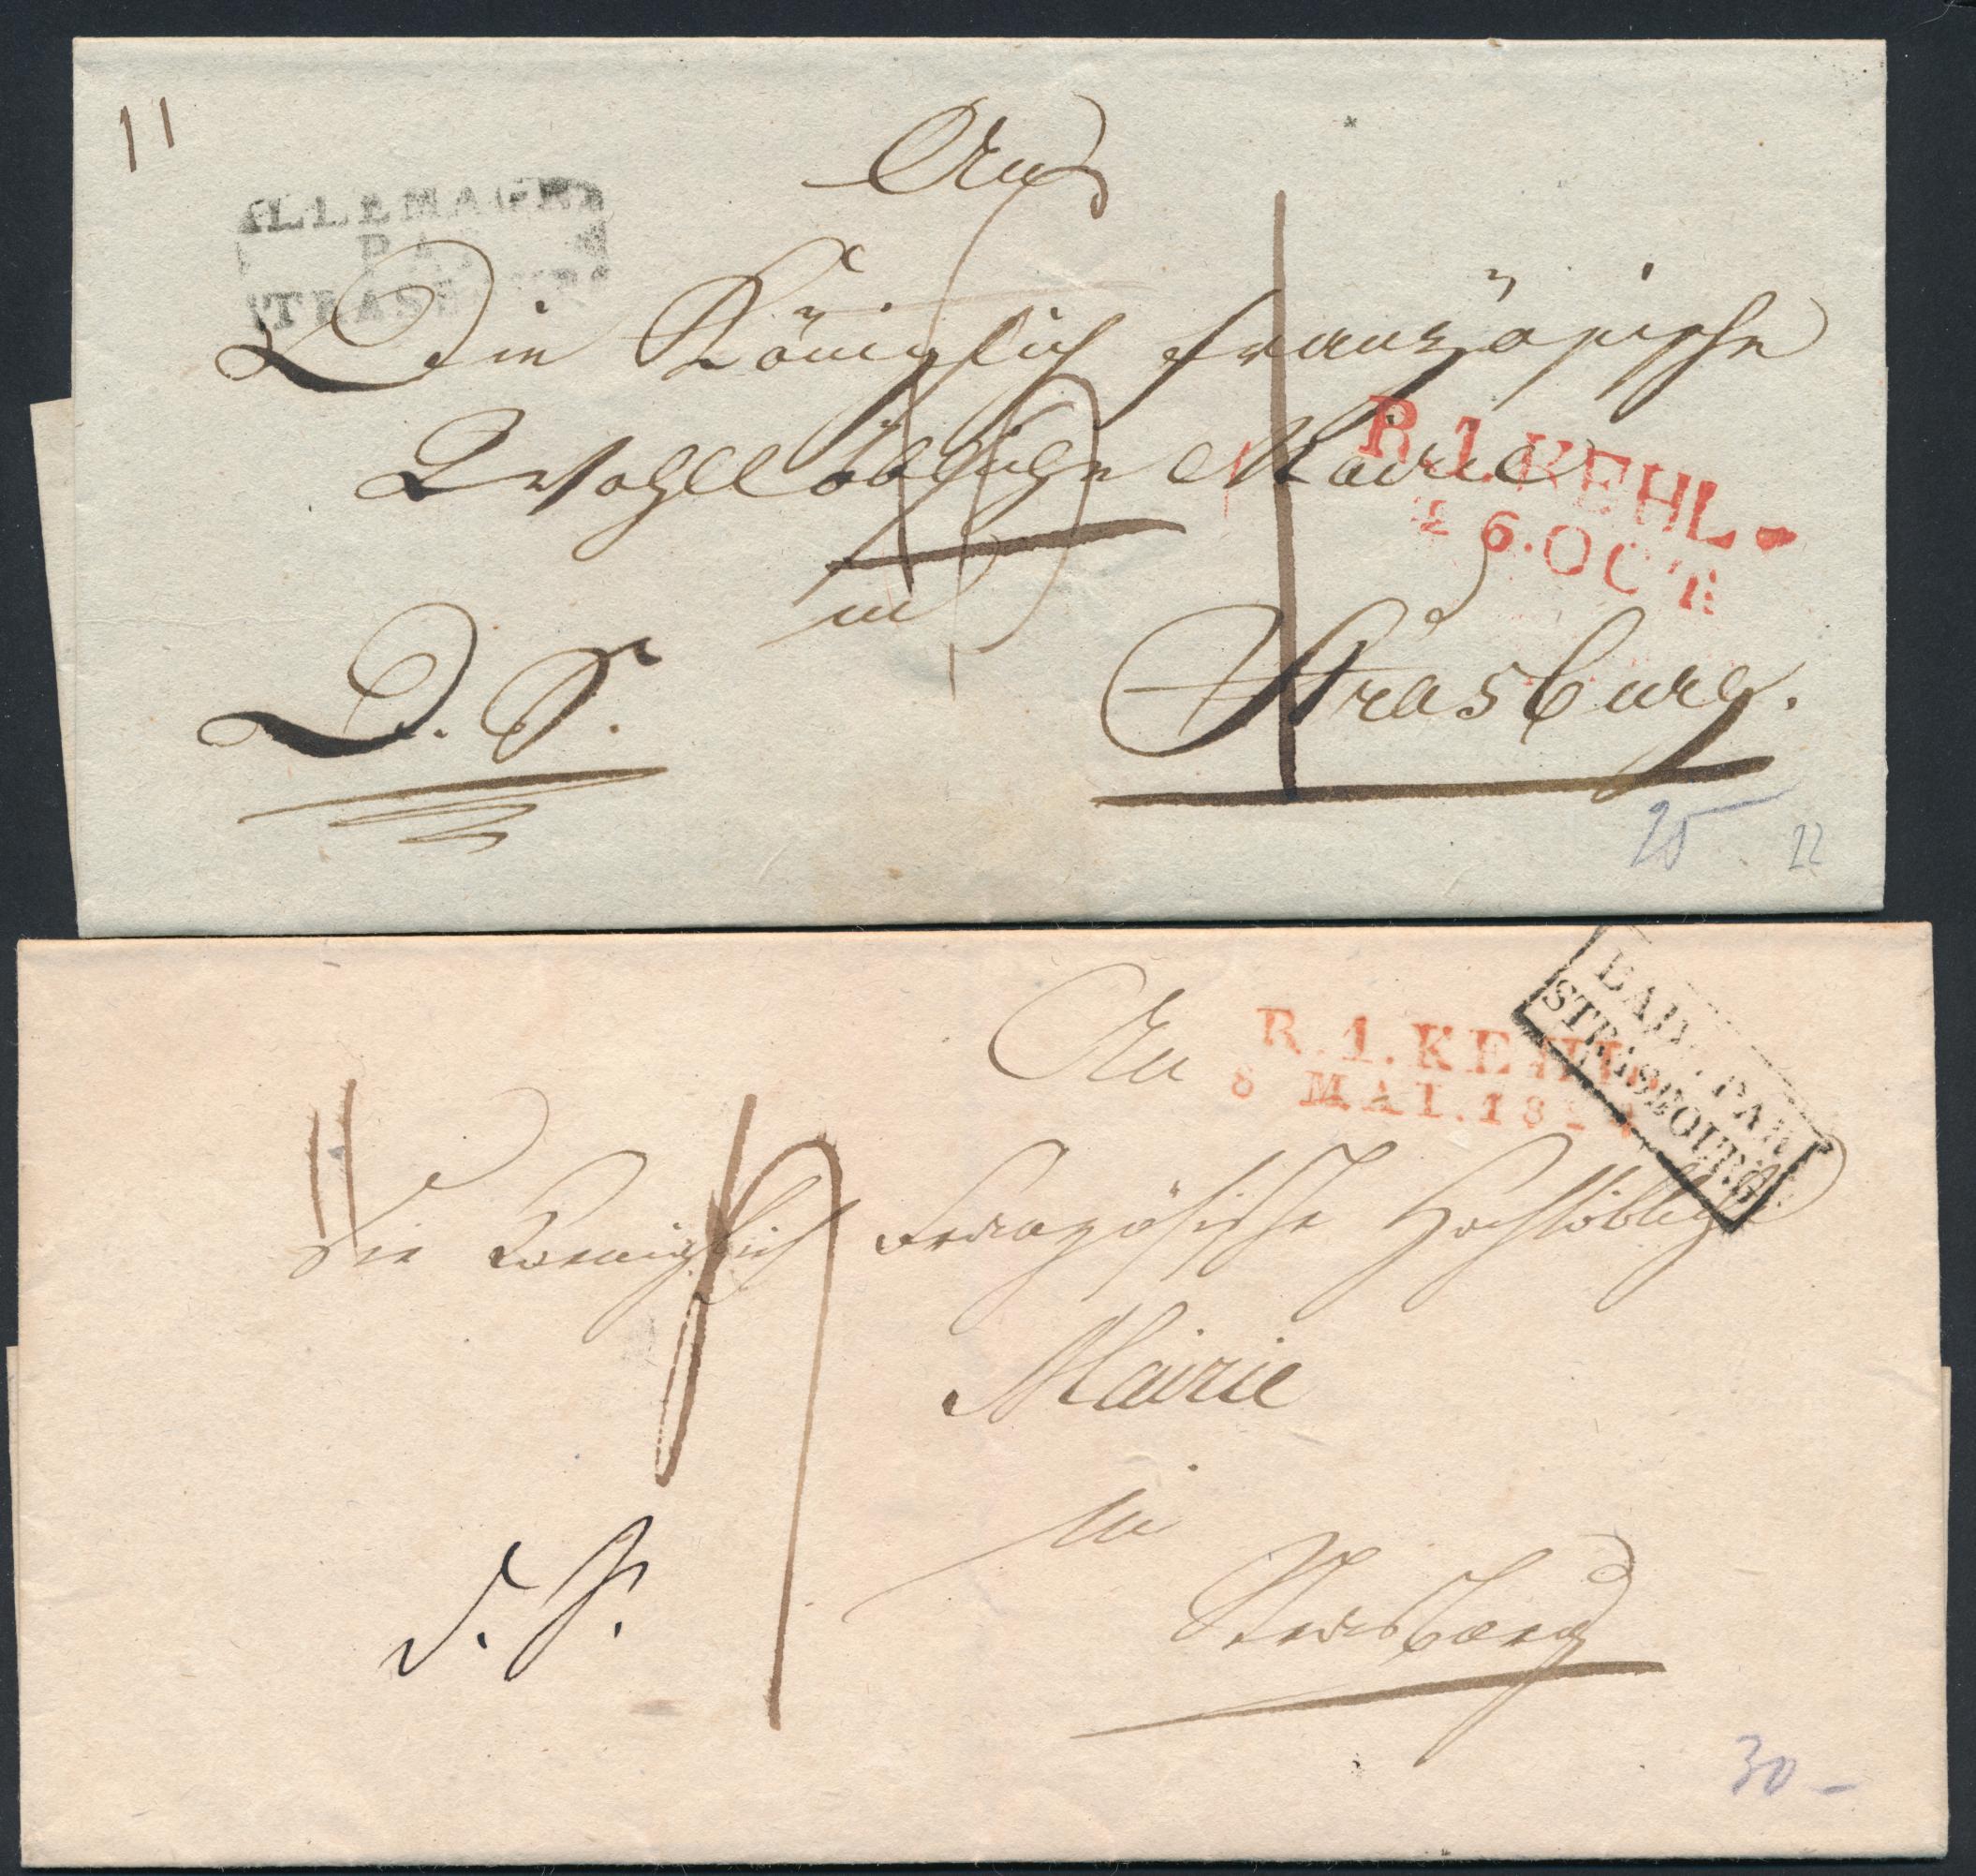 11
An
ALLEMAGNE
PAR
STRASBOURG
Die Königlich französische
Wohllöbliche Mairie
R.1.KEHL.
26.OCT
in
D. S.
Strasburg.
25
22
An
R.1.KEHL
8 MAI.18
BADE PAR
STRASBOURG
Die Koeniglich Französische Hochlöbliche
Mairie
in
D. S.
Strasburg
30-